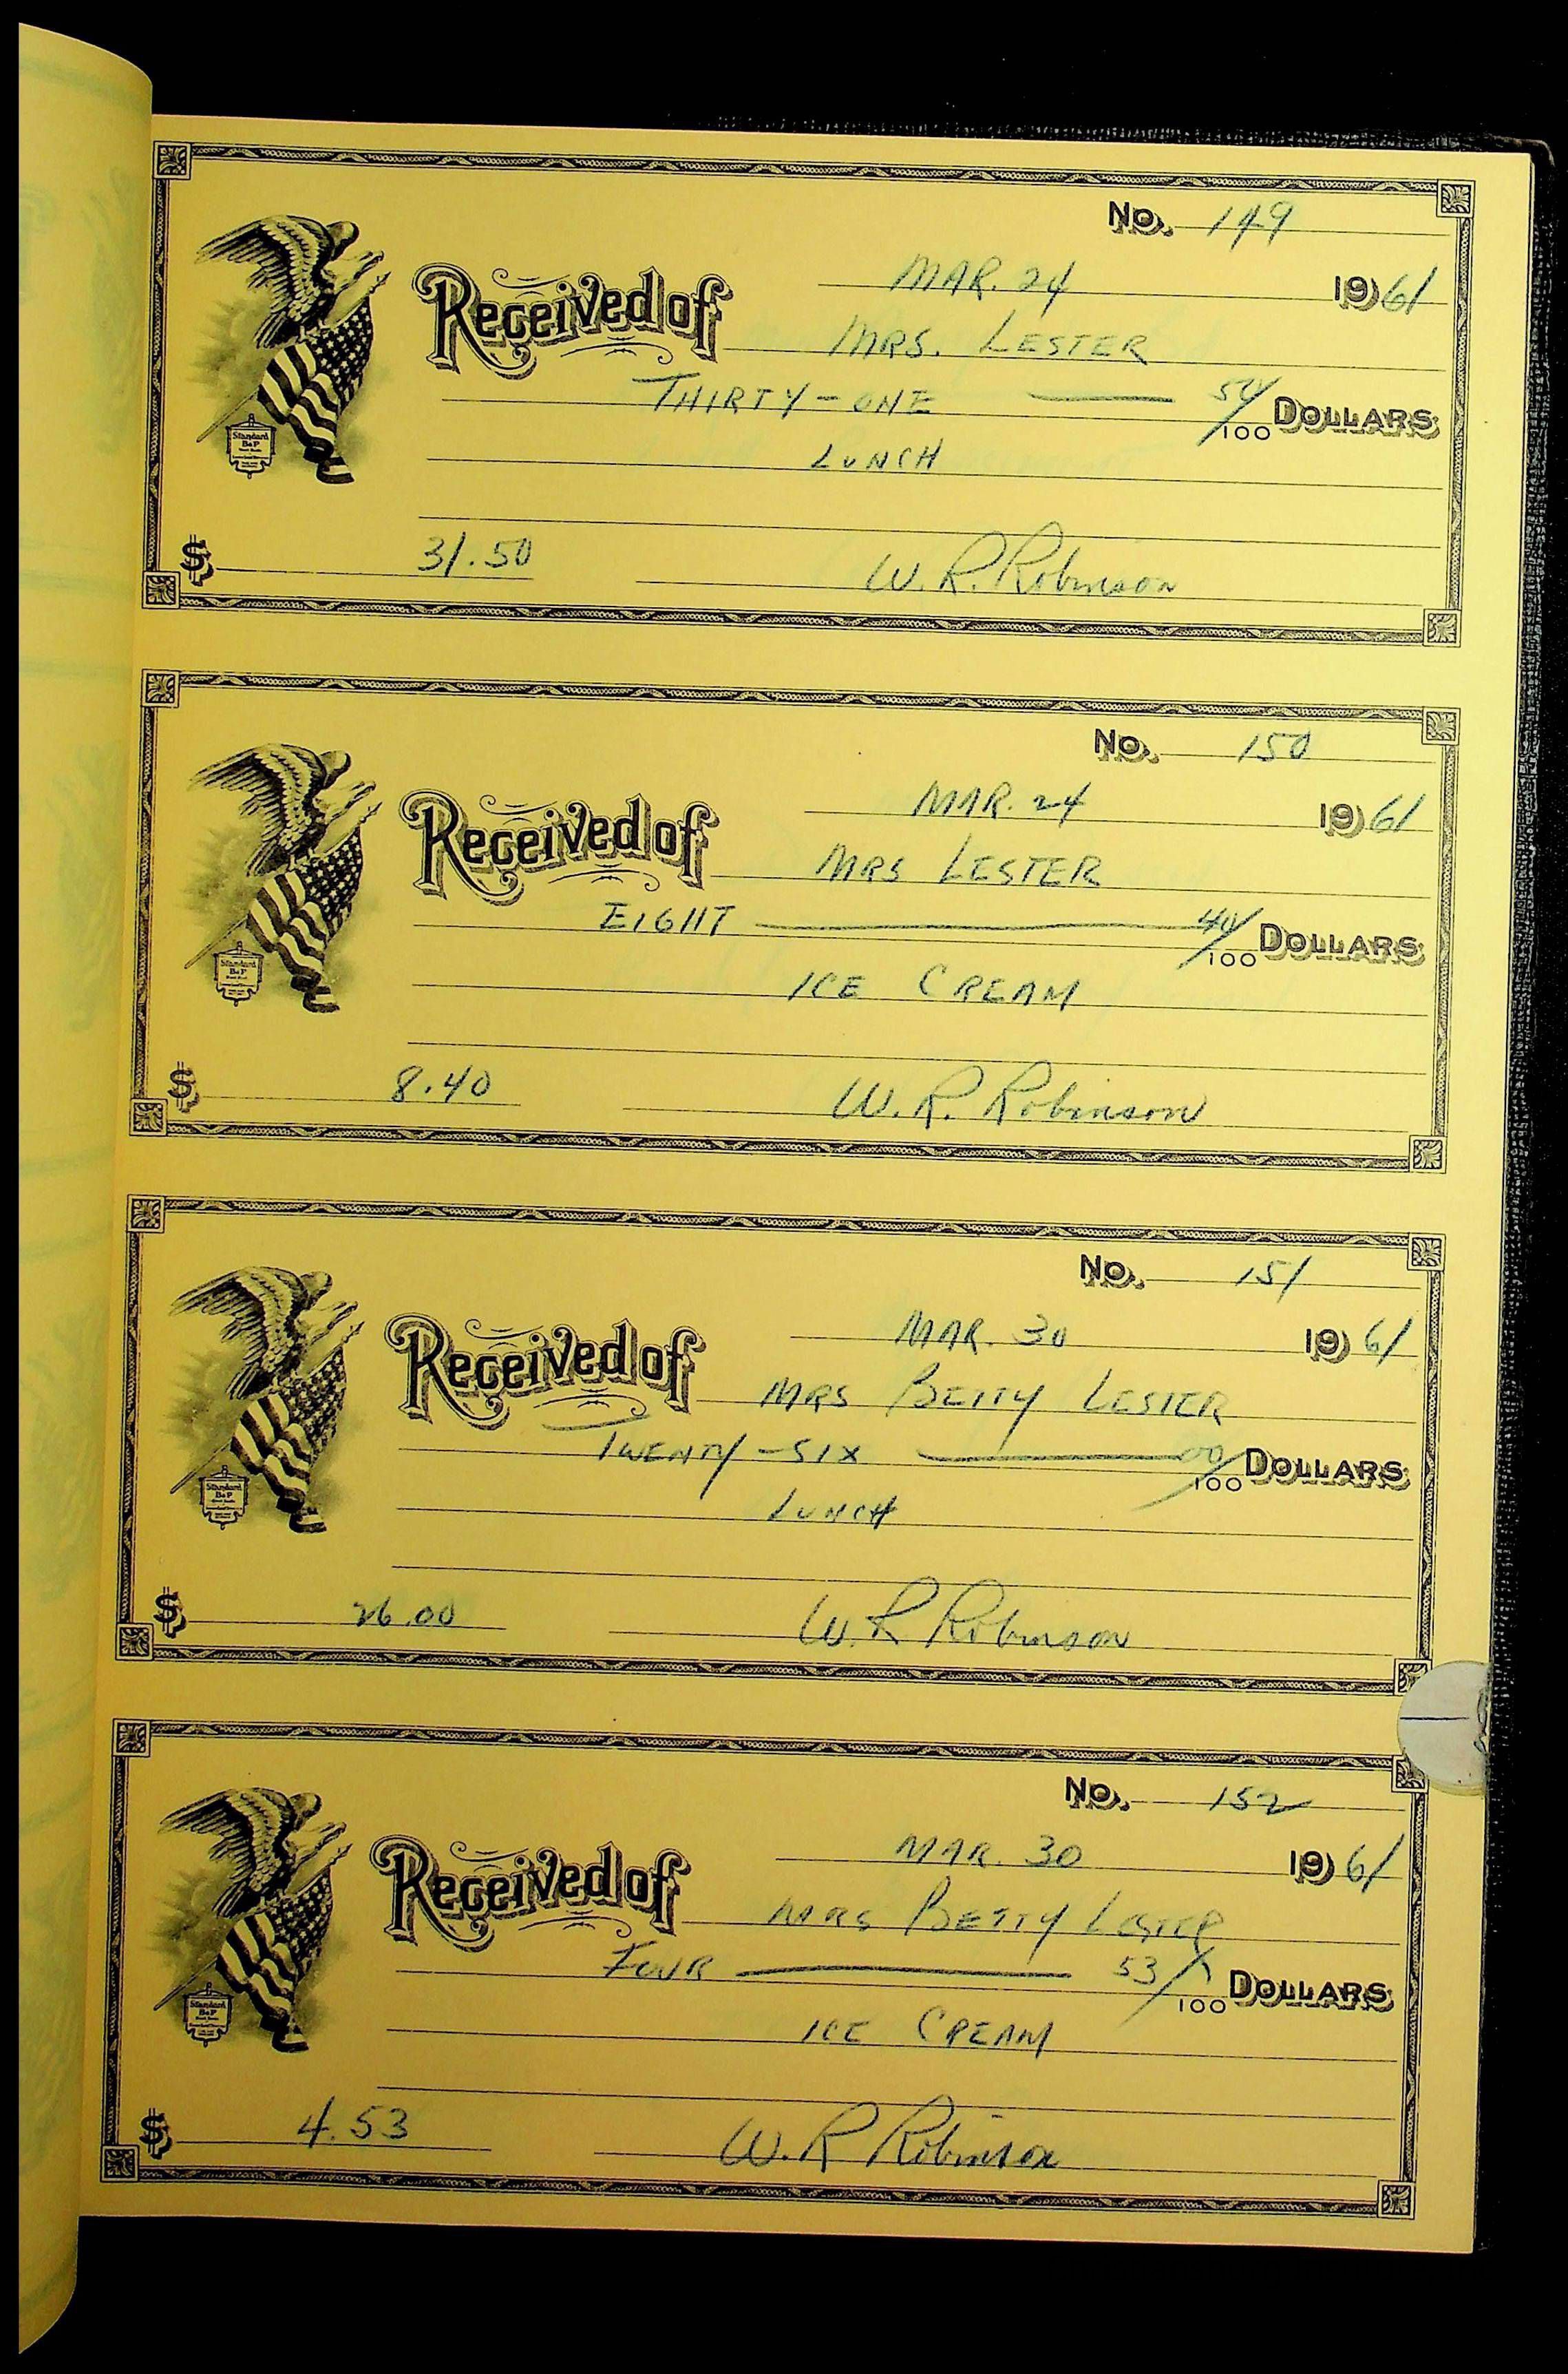 No. 149
MAR. 24 1961
Received of MRS. LESTER
THIRTY-ONE 50/100 DOLLARS
LUNCH
Standard
B&P
$ 31.50 W. R. Robinson
No. 150
MAR. 24 1961
Received of MRS LESTER
EIGHT 40/100 DOLLARS
ICE CREAM
Standard
B&P
$ 8.40 W. R. Robinson
No. 151
MAR. 30 1961
Received of MRS BETTY LESTER
TWENTY-SIX 00/100 DOLLARS
LUNCH
Standard
B&P
$ 26.00 W. R Robinson
No. 152
MAR. 30 1961
Received of MRS BETTY LESTER
FOUR 53/100 DOLLARS
ICE CREAM
Standard
B&P
$ 4.53 W. R Robinson